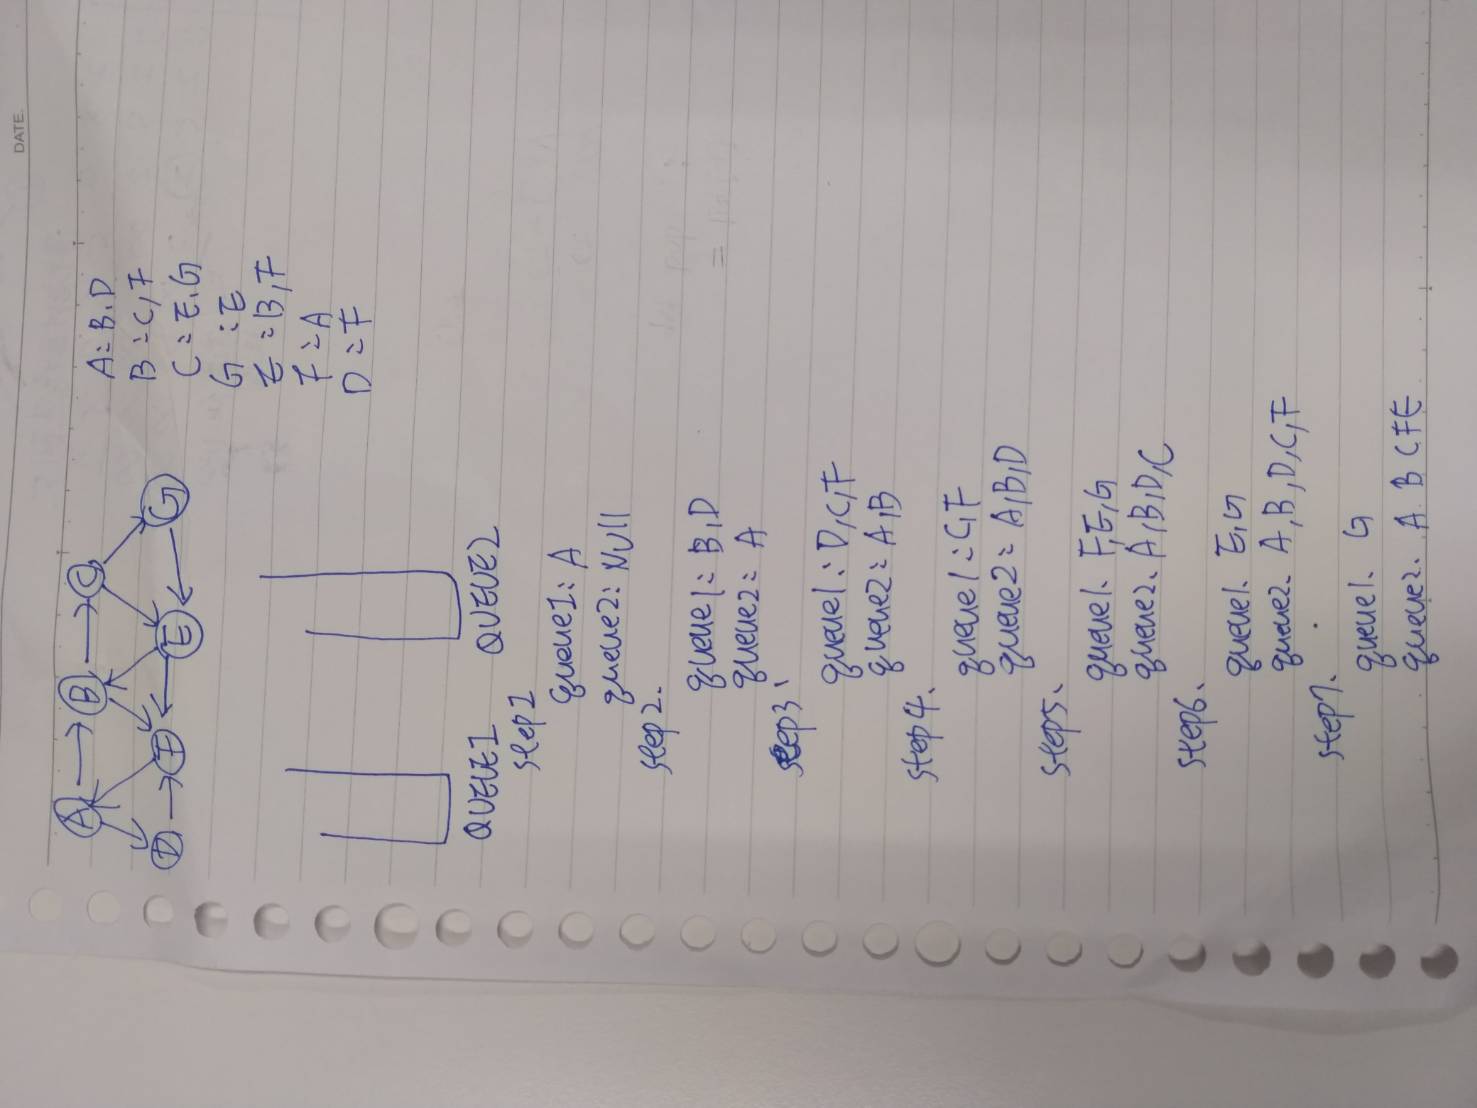 DATE.
A B C
D F E G
A: B,D
B: C,F
C: E,G
G: E
E: B,F
F: A
D: F
QUEUE1 QUEUE2
step1
queue1: A
queue2: Null
step2.
queue1: B,D
queue2: A
step3.
queue1: D,C,F
queue2: A,B
step4.
queue1: C,F
queue2: A,B,D
step5.
queue1. F,E,G
queue2. A,B,D,C
step6.
queue1. E,G
queue2. A,B,D,C,F
step7.
queue1. G
queue2. A B C F E